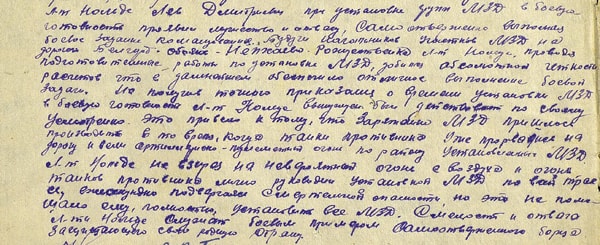 Л-т Нольде Лев Дмитриевич при установке групп МЗД в боевую
готовность проявил мужество и отвагу. Самоотверженно выполняя
боевое задание командования. Будучи начальником участков МЗД на
дороге Белгод-Обоянь - Рождественка Л-т Нольде, проводя
подготовительные работы по установке МЗД, добился абсолютной четкости
расчетов что в дальнейшем обеспечило отличное выполнение боевой
задачи. Не получив точного приказания о времени установки МЗД
в боевую готовность л-т Нольде вынужден был действовать по своему
усмотрению. Это привело к тому, что Заряжание МЗД пришлось
производить в то время, когда танки противника уже прорвались на
дорогу и вели артиллерийско-пулеметный огонь по району установки МЗД
Л-т Нольде не взирая на невероятной огонь с воздуха и огонь
танков противника лично руководил установкой МЗД по всей трас-
се, ежесекундно подвергаясь смертельной опасности, но это не поме-
шало ему, полностью установить все МЗД. Смелость и отвага
Л-та Нольде служат боевым примером самоотверженного борца
защищающего свою родную страну